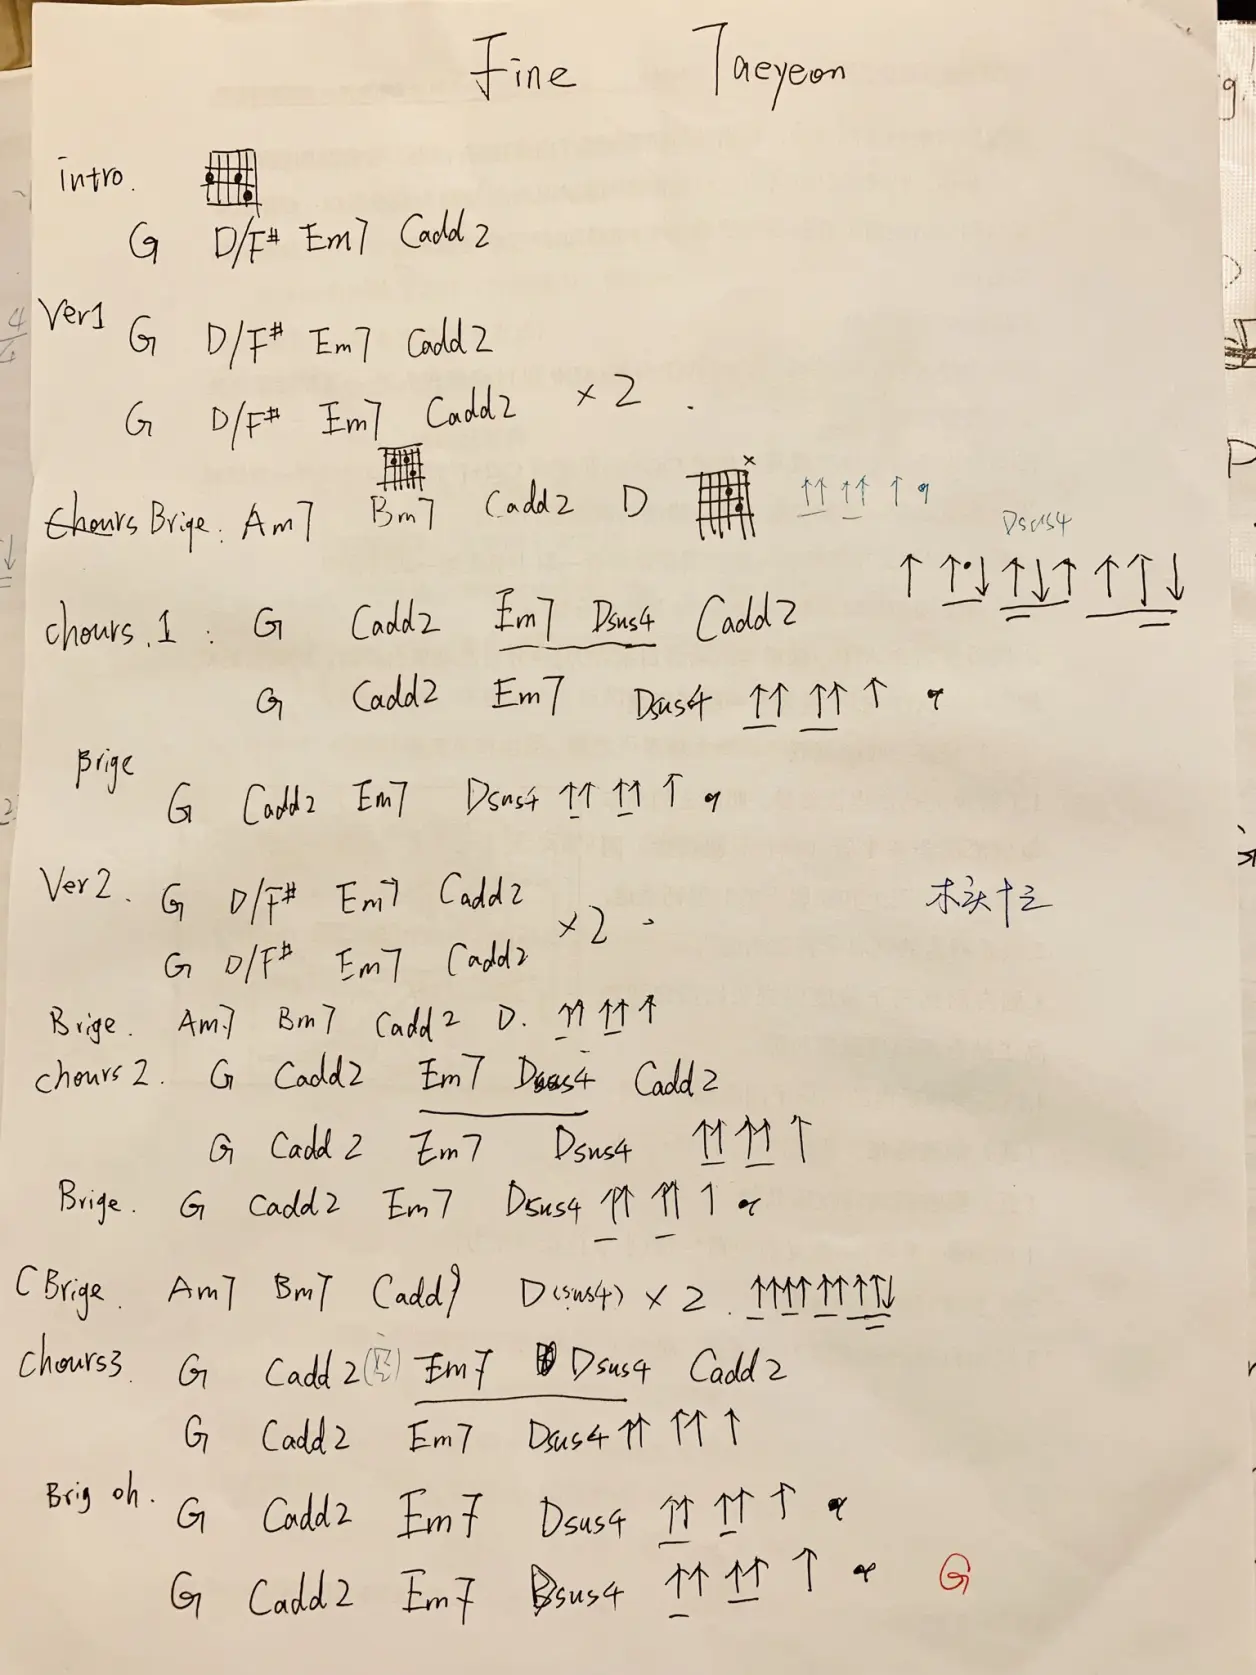 Fine Taeyeon
intro.
G D/F# Em7 Cadd2
Ver1 G D/F# Em7 Cadd2
G D/F# Em7 Cadd2 × 2 .
Chours Brige: Am7 Bm7 Cadd2 D × ↑↑ ↑↑ ↑
Dsus4
↑ ↑·↓ ↑↓↑ ↑↑↓
Chours.1 : G Cadd2 Em7 Dsus4 Cadd2
G Cadd2 Em7 Dsus4 ↑↑ ↑↑ ↑
Brige
G Cadd2 Em7 Dsus4 ↑↑ ↑↑ ↑
Ver2. G D/F# Em7 Cadd2
× 2
G D/F# Em7 Cadd2
木头十三
Brige. Am7 Bm7 Cadd2 D. ↑↑ ↑↑ ↑
Chours2. G Cadd2 Em7 Dsus4 Cadd2
G Cadd2 Em7 Dsus4 ↑↑ ↑↑ ↑
Brige. G Cadd2 Em7 Dsus4 ↑↑ ↑↑ ↑
C Brige. Am7 Bm7 Cadd9 D(sus4) × 2 . ↑↑↑↑ ↑↑ ↑↑↓
Chours3 G Cadd2 Em7 Dsus4 Cadd2
G Cadd2 Em7 Dsus4 ↑↑ ↑↑ ↑
Brig oh. G Cadd2 Em7 Dsus4 ↑↑ ↑↑ ↑
G Cadd2 Em7 Dsus4 ↑↑ ↑↑ ↑ G